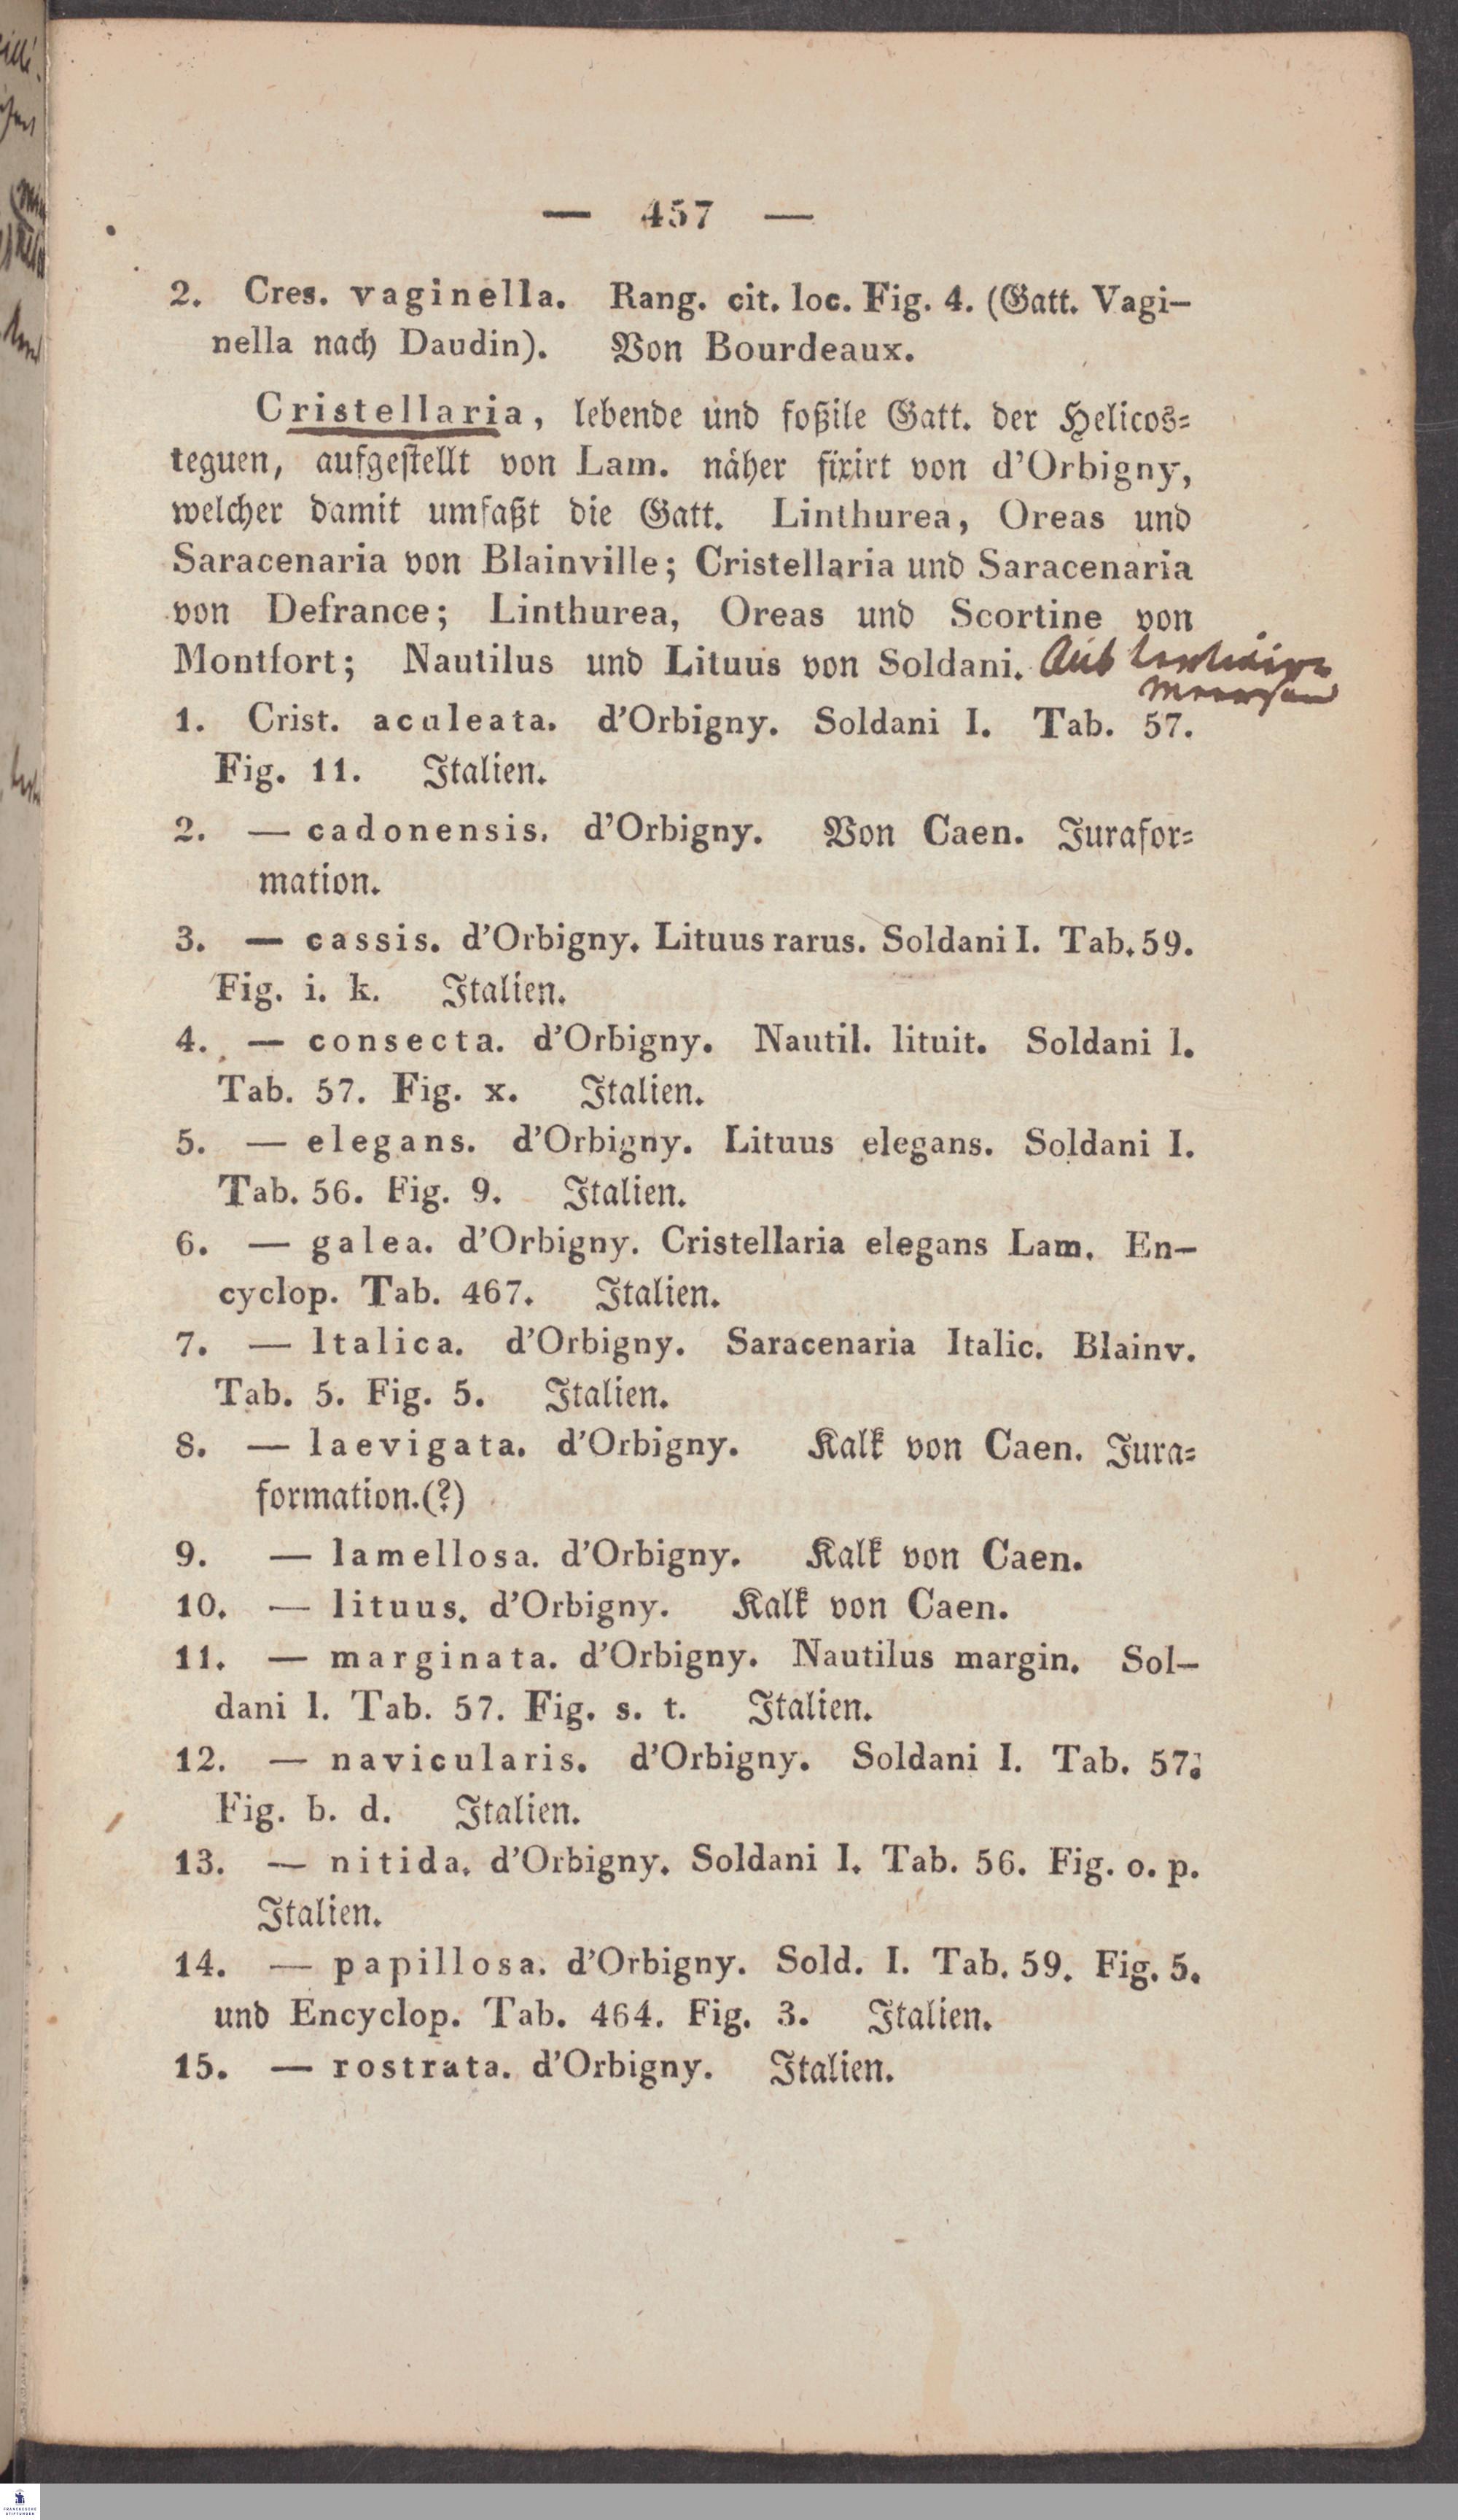 — 457 —
2. Cres. vaginella. Rang. cit. loc. Fig. 4. (Gatt. Vagi-
nella nach Daudin). Von Bourdeaux.
Cristellaria, lebende und foßile Gatt. der Helicos-
teguen, aufgestellt von Lam. näher fixirt von d'Orbigny,
welcher damit umfaßt die Gatt. Linthurea, Oreas und
Saracenaria von Blainville; Cristellaria und Saracenaria
von Defrance; Linthurea, Oreas und Scortine von
Montfort; Nautilus und Lituus von Soldani. Aus
1. Crist. aculeata. d'Orbigny. Soldani I. Tab. 57.
Fig. 11. Italien.
2. — cadonensis. d'Orbigny. Von Caen. Jurafor-
mation.
3. — cassis. d'Orbigny. Lituus rarus. Soldani I. Tab. 59.
Fig. i. k. Italien.
4. — consecta. d'Orbigny. Nautil. lituit. Soldani l.
Tab. 57. Fig. x. Italien.
5. — elegans. d'Orbigny. Lituus elegans. Soldani I.
Tab. 56. Fig. 9. Italien.
6. — galea. d'Orbigny. Cristellaria elegans Lam. En-
cyclop. Tab. 467. Italien.
7. — Italica. d'Orbigny. Saracenaria Italic. Blainv.
Tab. 5. Fig. 5. Italien.
8. — laevigata. d'Orbigny. Kalk von Caen. Jura-
formation.(?)
9. — lamellosa. d'Orbigny. Kalk von Caen.
10. — lituus. d'Orbigny. Kalk von Caen.
11. — marginata. d'Orbigny. Nautilus margin. Sol-
dani l. Tab. 57. Fig. s. t. Italien.
12. — navicularis. d'Orbigny. Soldani I. Tab. 57.
Fig. b. d. Italien.
13. — nitida. d'Orbigny. Soldani I. Tab. 56. Fig. o. p.
Italien.
14. — papillosa. d'Orbigny. Sold. I. Tab. 59. Fig. 5.
und Encyclop. Tab. 464. Fig. 3. Italien.
15. — rostrata. d'Orbigny. Italien.
FRANCKESCHE
STIFTUNGEN